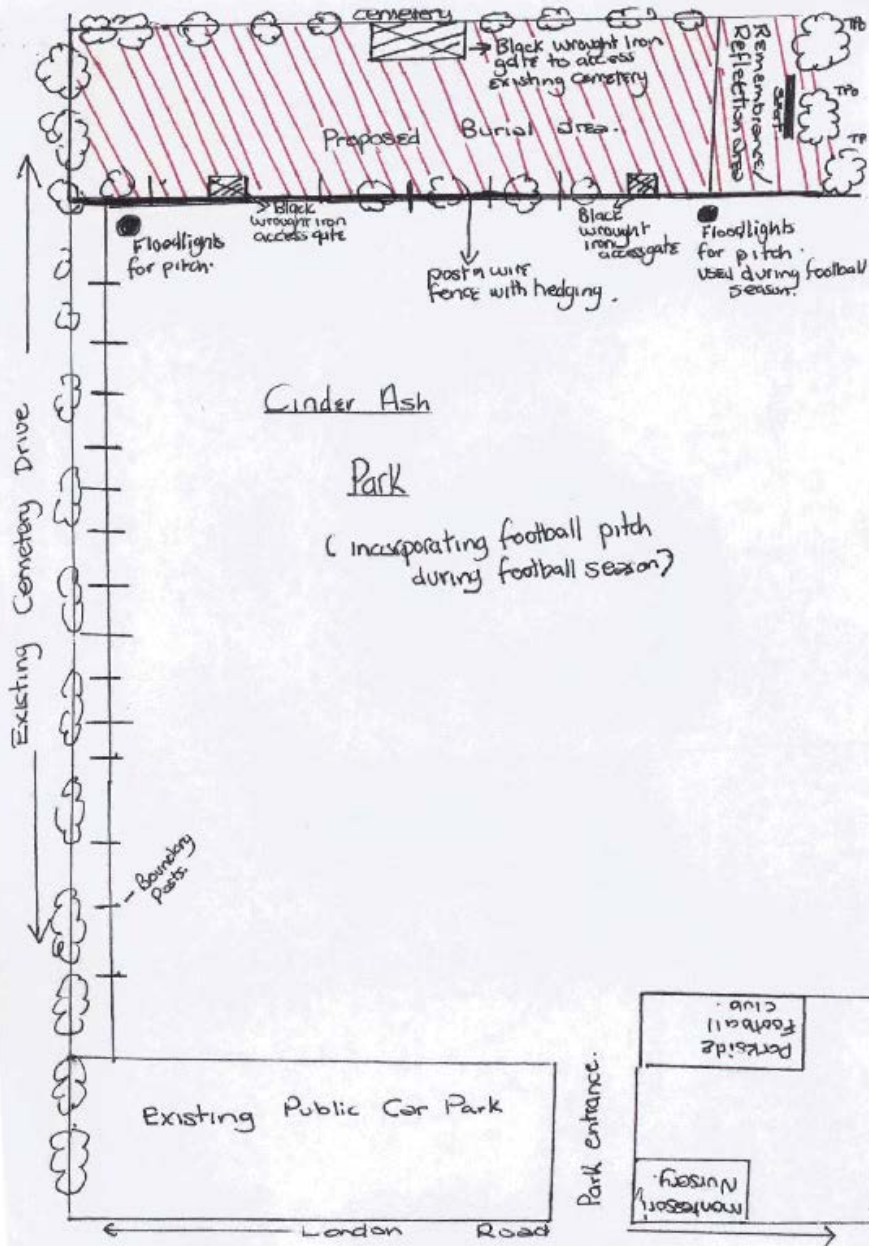 cemetery
Black wrought iron
gate to access
existing cemetery
TPO
TPO
TP
Remembrance/
Reflection area
seat
Proposed Burial area.
Black
wrought iron
access gate
Black
wrought
iron
access gate
Floodlights
for pitch.
post n wire
fence with hedging.
Floodlights
for pitch.
used during football
season.
Existing Cemetery Drive
Cinder Ash
Park
(incorporating football pitch
during football season)
Boundary
Posts.
Existing Public Car Park
Park entrance.
Parkside
Football
Club.
Montessori
Nursery.
London Road